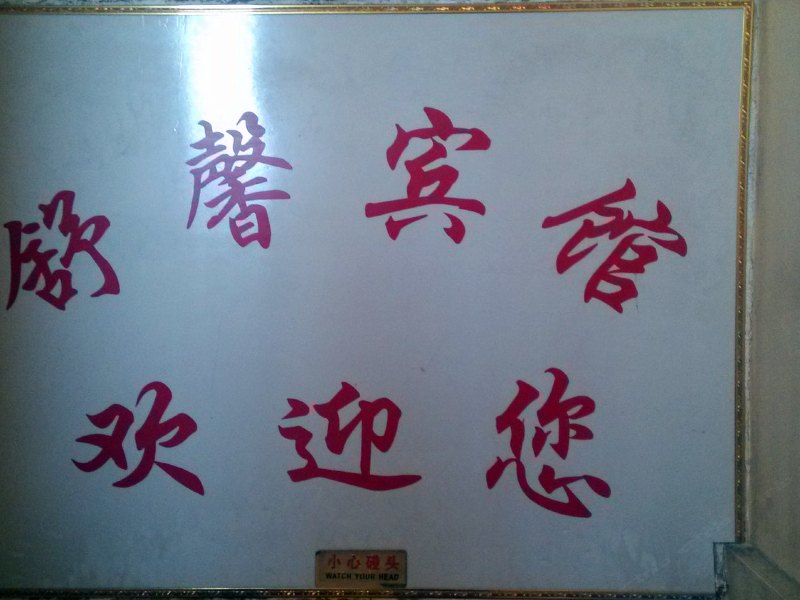 舒馨宾馆
欢迎您
小心碰头
WATCH YOUR HEAD